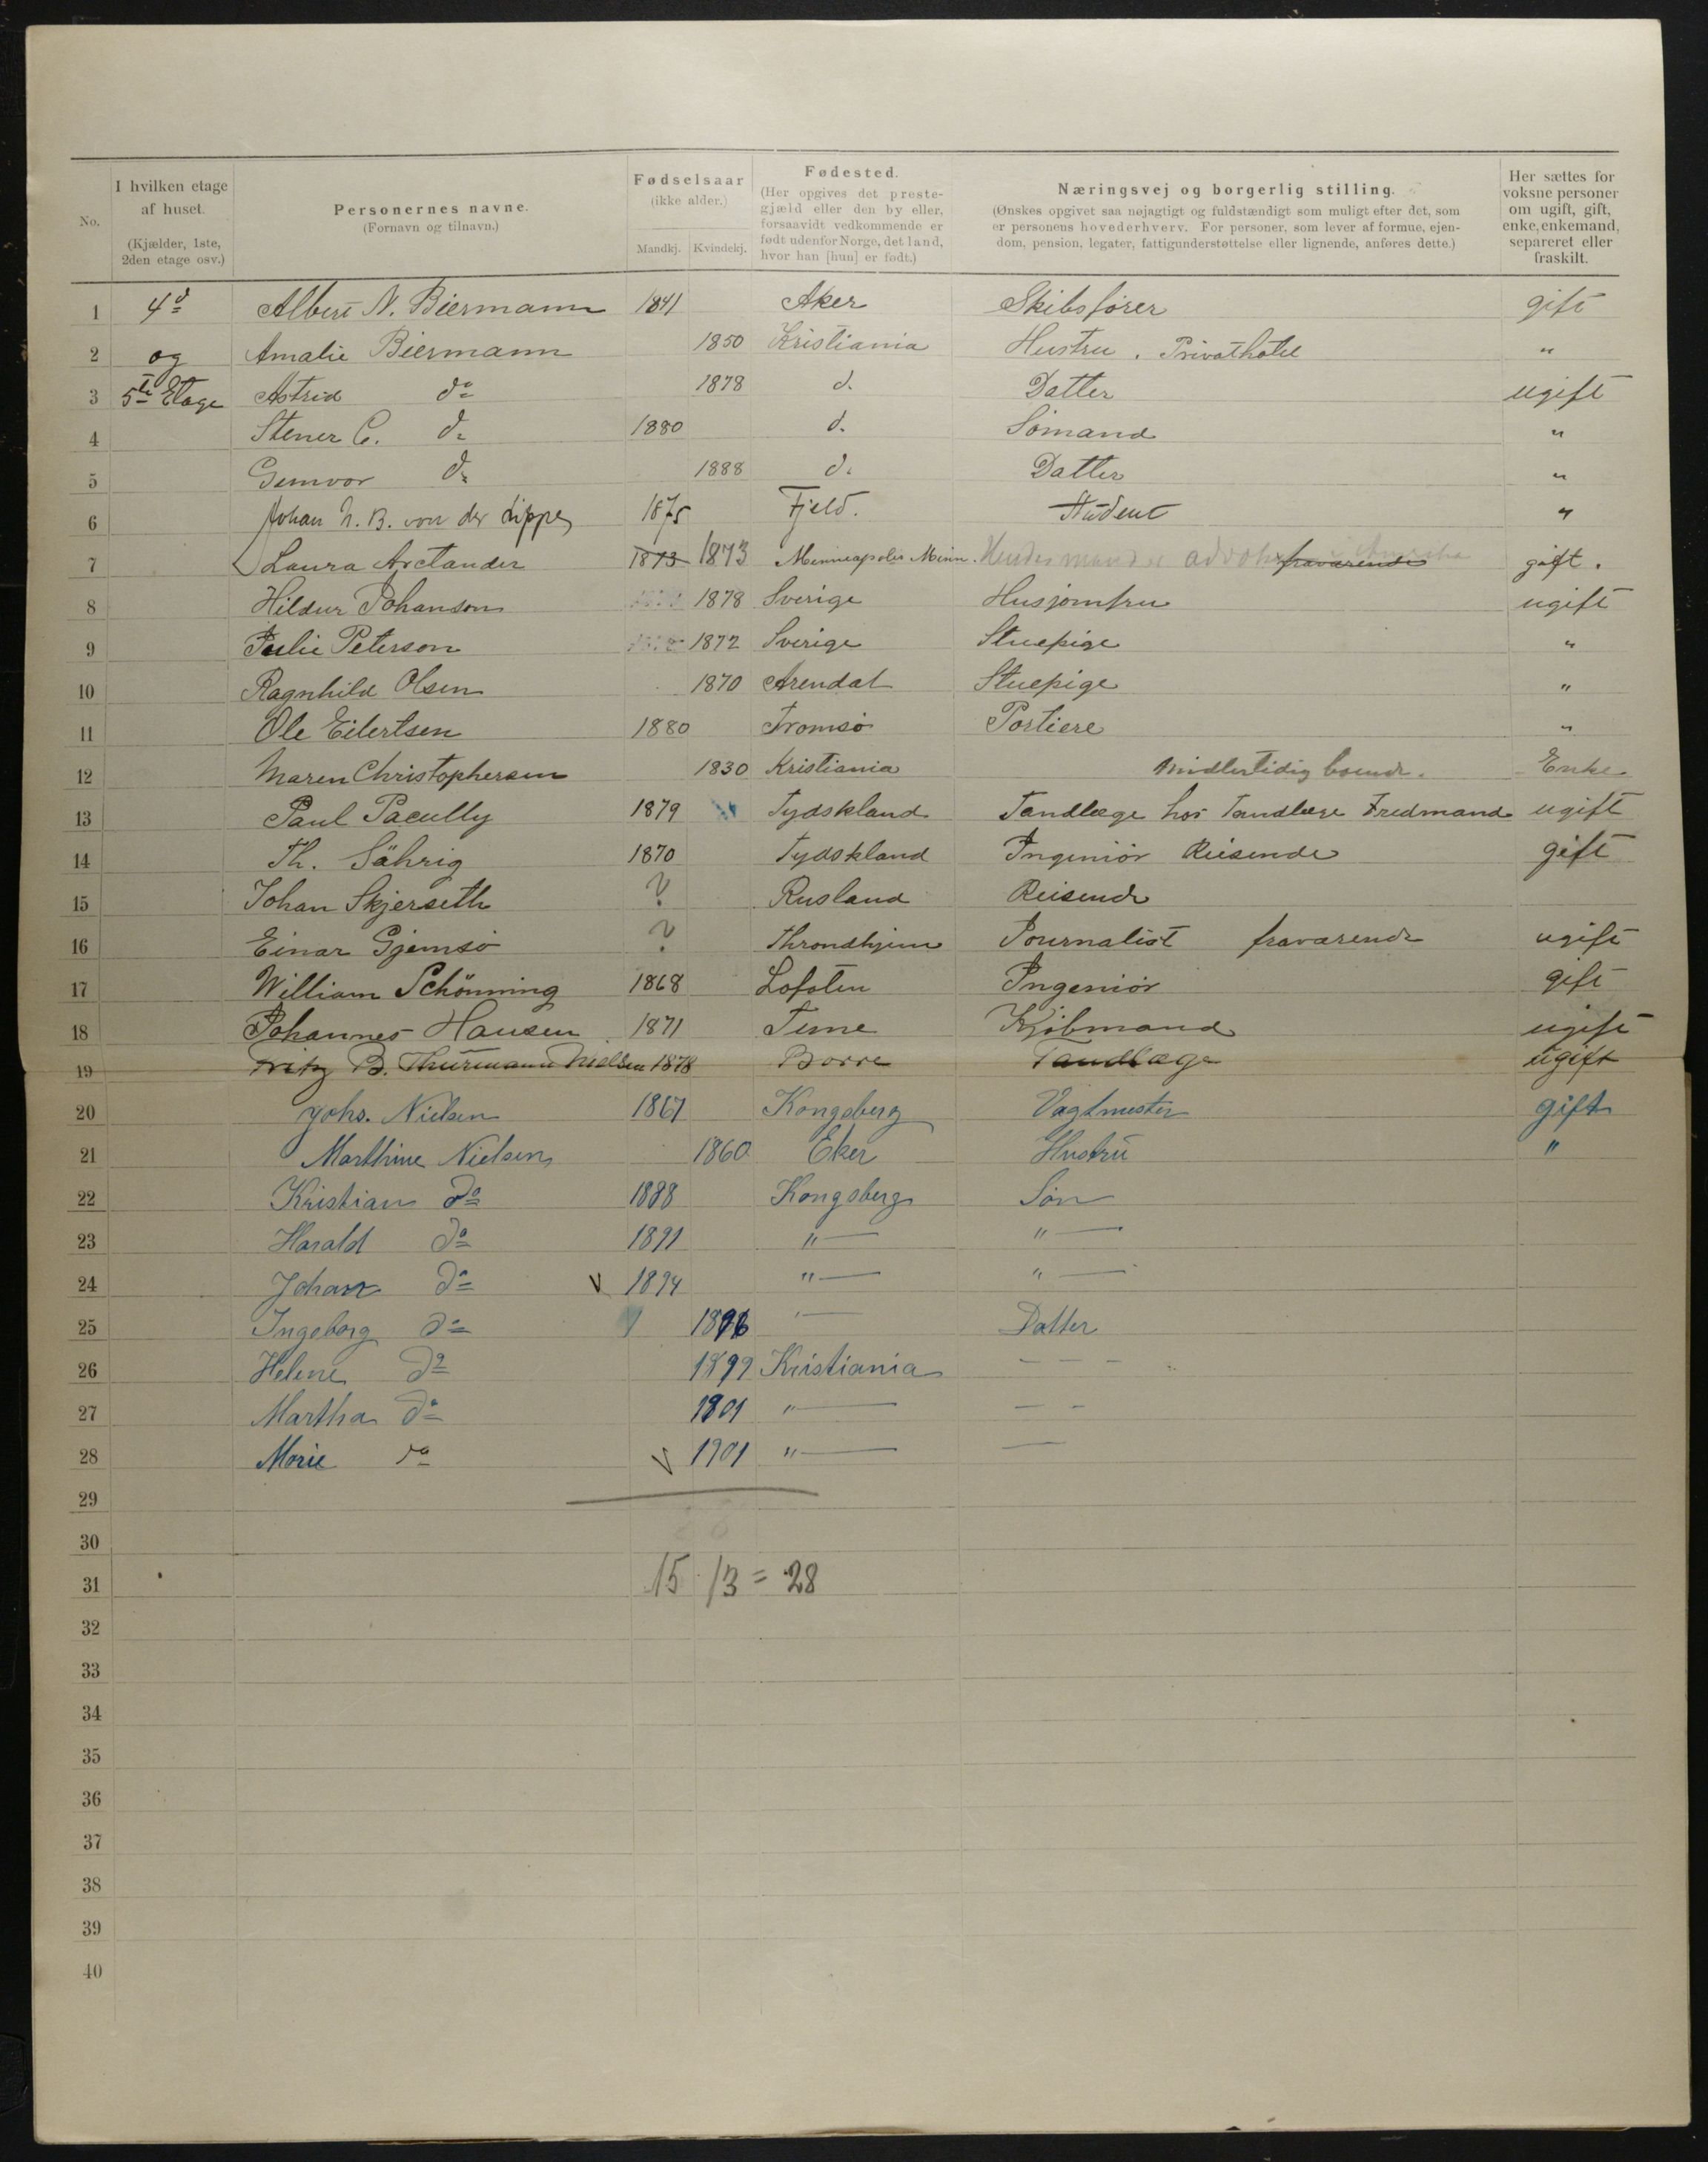 No.
I hvilken etage af huset. (Kjælder, 1ste, 2den etage osv.)
Personernes navne. (Fornavn og tilnavn.)
Fødselsaar (ikke alder.) Mandkj. Kvindekj.
Fødested. (Her opgives det prestegjæld eller den by eller, forsaavidt vedkommende er født udenfor Norge, det land, hvor han [hun] er født.)
Næringsvej og borgerlig stilling. (Ønskes opgivet saa nøjagtigt og fuldstændigt som muligt efter det, som er personens hovederhverv. For personer, som lever af formue, ejendom, pension, legater, fattigunderstøttelse eller lignende, anføres dette.)
Her sættes for voksne personer om ugift, gift, enke, enkemand, separeret eller fraskilt.
1 4d Albert N. Biermann 1841 Aker Skibsfører gift
2 og Amalie Biermann 1850 Kristiania Hustru. Privathotel "
3 5te Etage Astrid do 1878 d. Datter ugift
4 Stener C. do 1880 d. Sømand "
5 Gemvor do 1888 d. Datter "
6 Johan N. B. von der Lippe 1875 Fjeld. Student "
7 Laura Arctander 1873 1873 Minneapolis Minn. fraværende gift.
8 Hildur Johanson 1878 Sverige Husjomfru ugift
9 Julie Peterson 1872 Sverige Stuepige "
10 Ragnhild Olsen 1870 Arendal Stuepige "
11 Ole Eilertsen 1880 Tromsø Portiere "
12 Maren Christophersen 1830 Kristiania Midlertidig boende. Enke
13 Paul Pacully 1879 Tydskland Tandlæge hos Tandlæge Fredmand ugift
14 Th. Sährig 1870 Tydskland Ingeniør Reisende gift
15 Johan Skjerseth ? Rusland Reisende
16 Einar Gjemsø ? Throndhjem Journalist fraværende ugift
17 William Schönning 1868 Lofoten Ingeniør gift
18 Johannes Hansen 1871 Time Kjøbmand ugift
19 Fritz B. Thurmann Nielsen 1878 Borre Tandlæge ugift
20 Johs. Nielsen 1867 Kongsberg Vagtmester gift
21 Marthine Nielsen 1860 Eker Hustru "
22 Kristian do 1888 Kongsberg Søn
23 Harald do 1891 " — " —
24 Johan do V 1894 " — " —
25 Ingeborg do 1896 " — Datter
26 Helene do 1899 Kristiania — — —
27 Martha do 1901 " — — —
28 Marie do V 1901 " — —
29
30
31 15 13 = 28
32
33
34
35
36
37
38
39
40